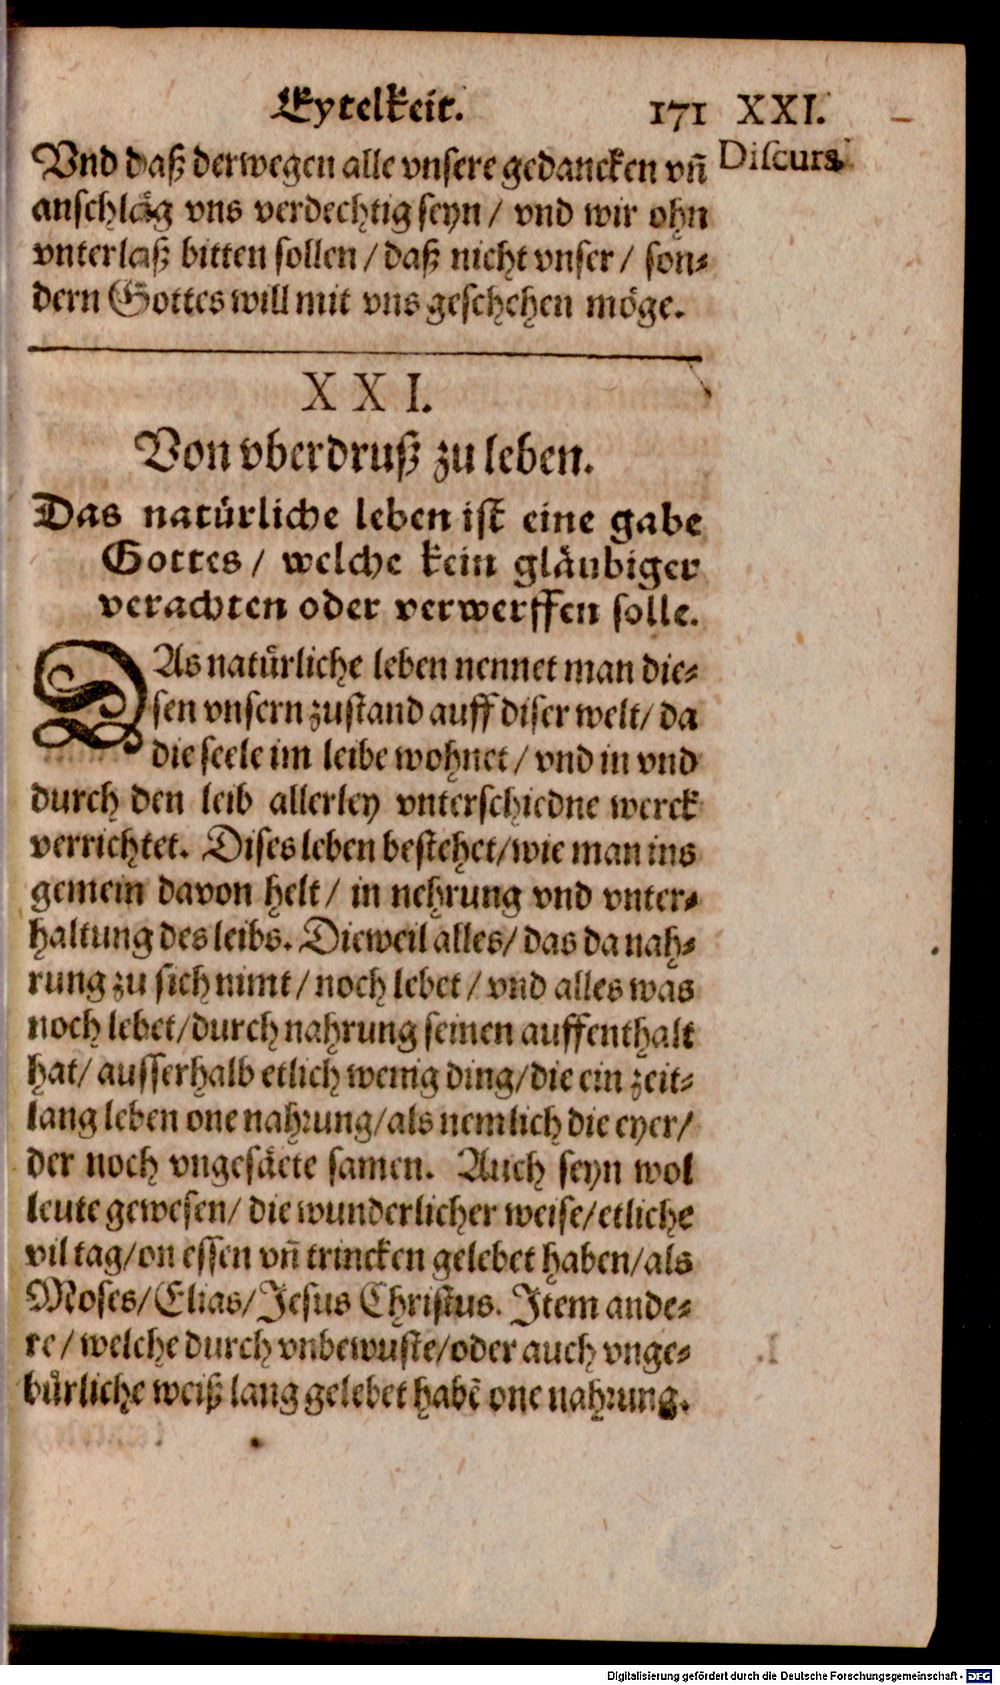 Eytelkeit. 171 XXI.
Discurs.
Vnd daß derwegen alle vnsere gedancken vñ
anschläg vns verdechtig seyn / vnd wir ohn
vnterlaß bitten sollen / daß nicht vnser / son-
dern Gottes will mit vns geschehen möge.
XXI.
Von vberdruß zu leben.
Das natürliche leben ist eine gabe
Gottes / welche kein gläubiger
verachten oder verwerffen solle.
DAs natürliche leben nennet man die-
sen vnsern zustand auff diser welt / da
die seele im leibe wohnet / vnd in vnd
durch den leib allerley vnterschiedne werck
verrichtet. Dises leben bestehet / wie man ins
gemein davon helt / in nehrung vnd vnter-
haltung des leibs. Dieweil alles / das da nah-
rung zu sich nimt / noch lebet / vnd alles was
noch lebet / durch nahrung seinen auffenthalt
hat / ausserhalb etlich wenig ding / die ein zeit-
lang leben one nahrung / als nemlich die eyer /
der noch vngesäete samen. Auch seyn wol
leute gewesen / die wunderlicher weise / etliche
vil tag / on essen vñ trincken gelebet haben / als
Moses / Elias / Jesus Christus. Item ande-
re / welche durch vnbewuste / oder auch vnge-
bürliche weiß lang gelebet habẽ one nahrung.
Digitalisierung gefördert durch die Deutsche Forschungsgemeinschaft - DFG